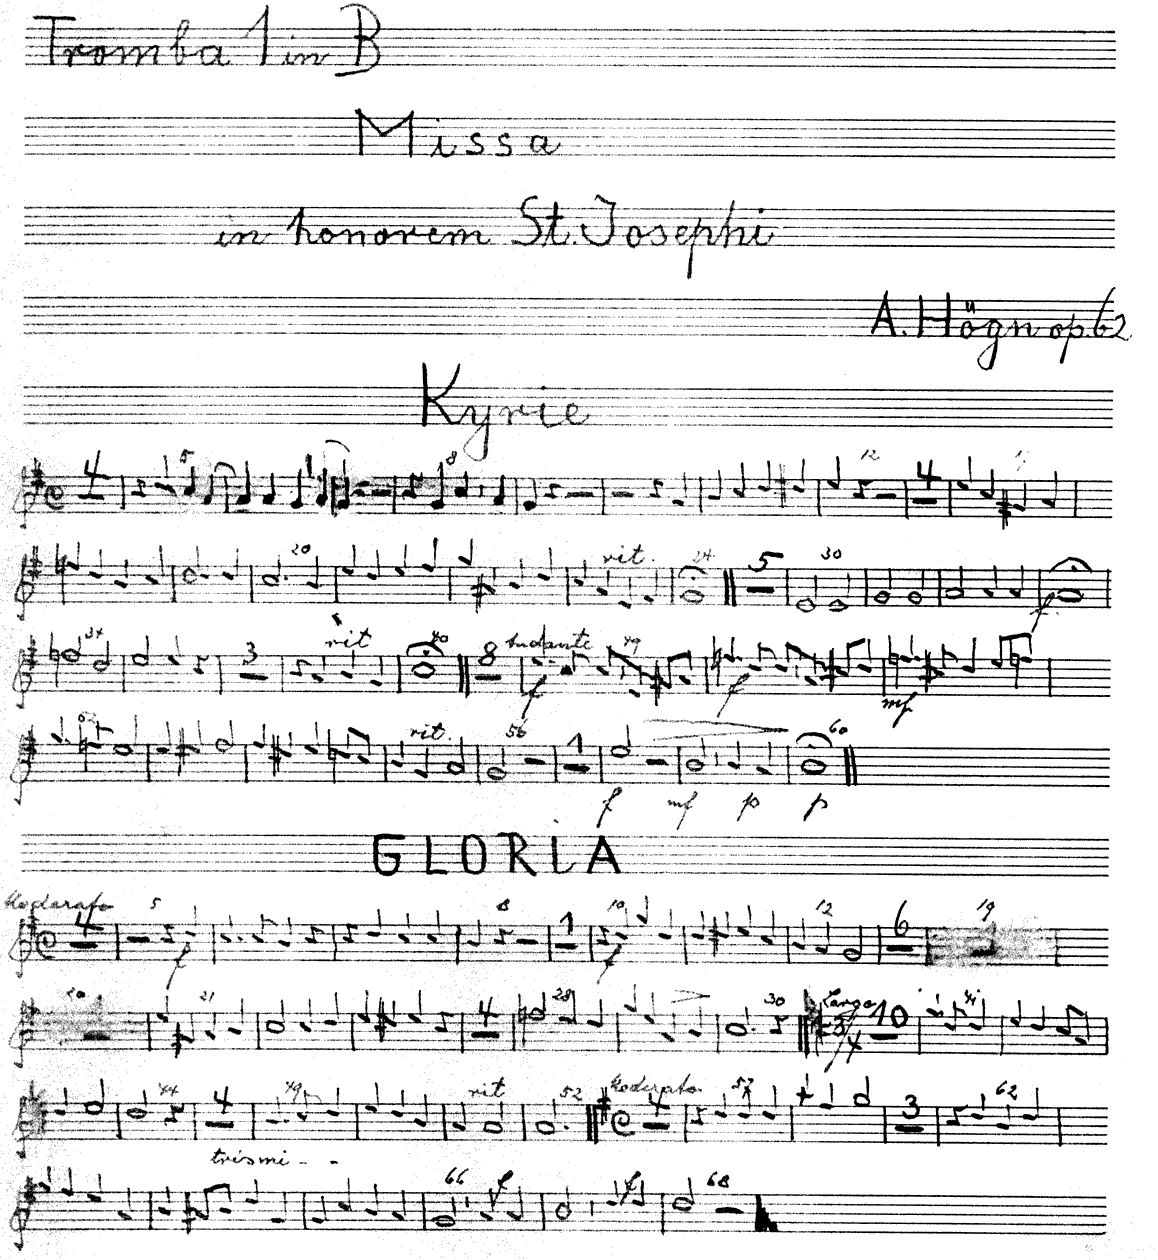 Tromba 1 in B
Missa
in honorem St. Josephi
A. Högn op. 62
Kyrie
4 5 8 12 4 17
20 rit. 24 5 30 f
34 3 rit 40 8 Andante 49 f f mf
52 rit. 56 1 60
f mf p p
GLORIA
Moderato 4 5 8 1 10 12 6 19
f f
20 21 4 28 30 Largo 3/4 10 41
44 4 49 rit 52 Moderato 4 57 3 62
trismi - -
66 f f 68